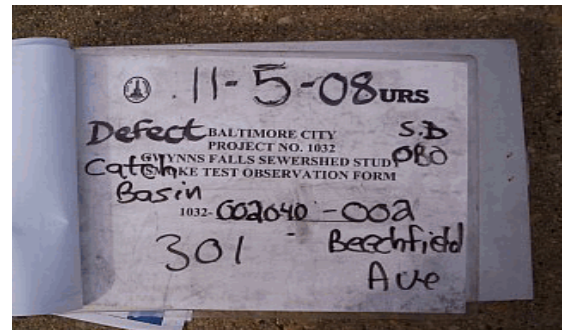 11-5-08 URS
Defect BALTIMORE CITY S.D
PROJECT NO. 1032
GWYNNS FALLS SEWERSHED STUDY
Catch SMOKE TEST OBSERVATION FORM
Basin
1032-G02040-002
301 Beechfield
Ave